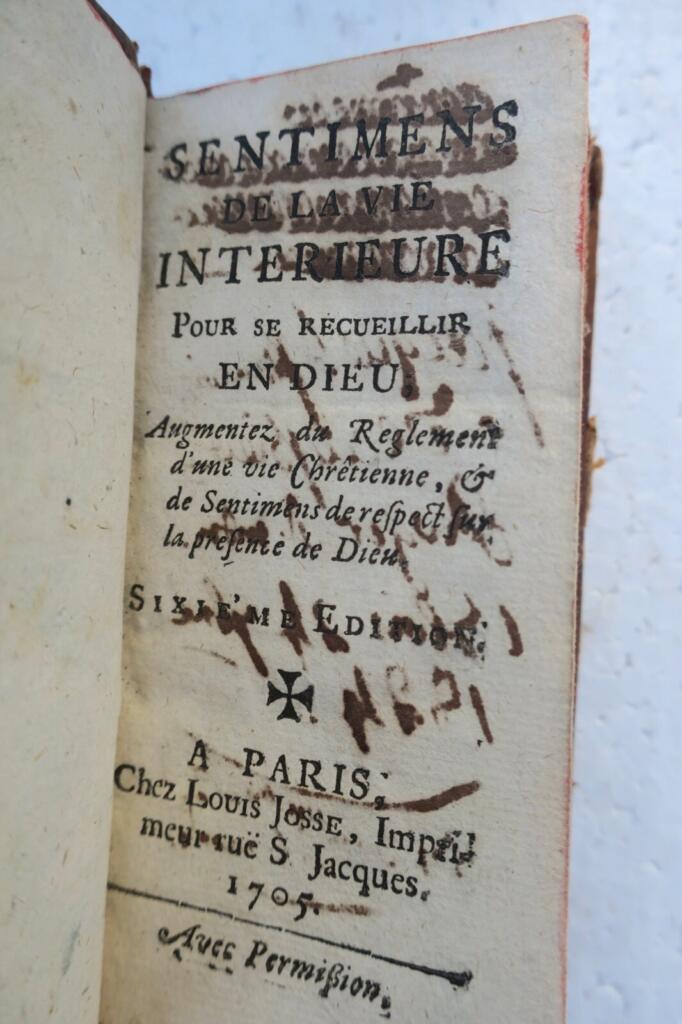 SENTIMENS
DE LA VIE
INTERIEURE
POUR SE RECUEILLIR
EN DIEU,
Augmentez du Reglement
d'une vie Chrêtienne, &
de Sentimens de reſpect ſur
la preſence de Dieu.
SIXIE'ME EDITION.
A PARIS,
Chez LOUIS JOSSE, Impri-
meur ruë S. Jacques.
1705.
Avec Permiſſion.